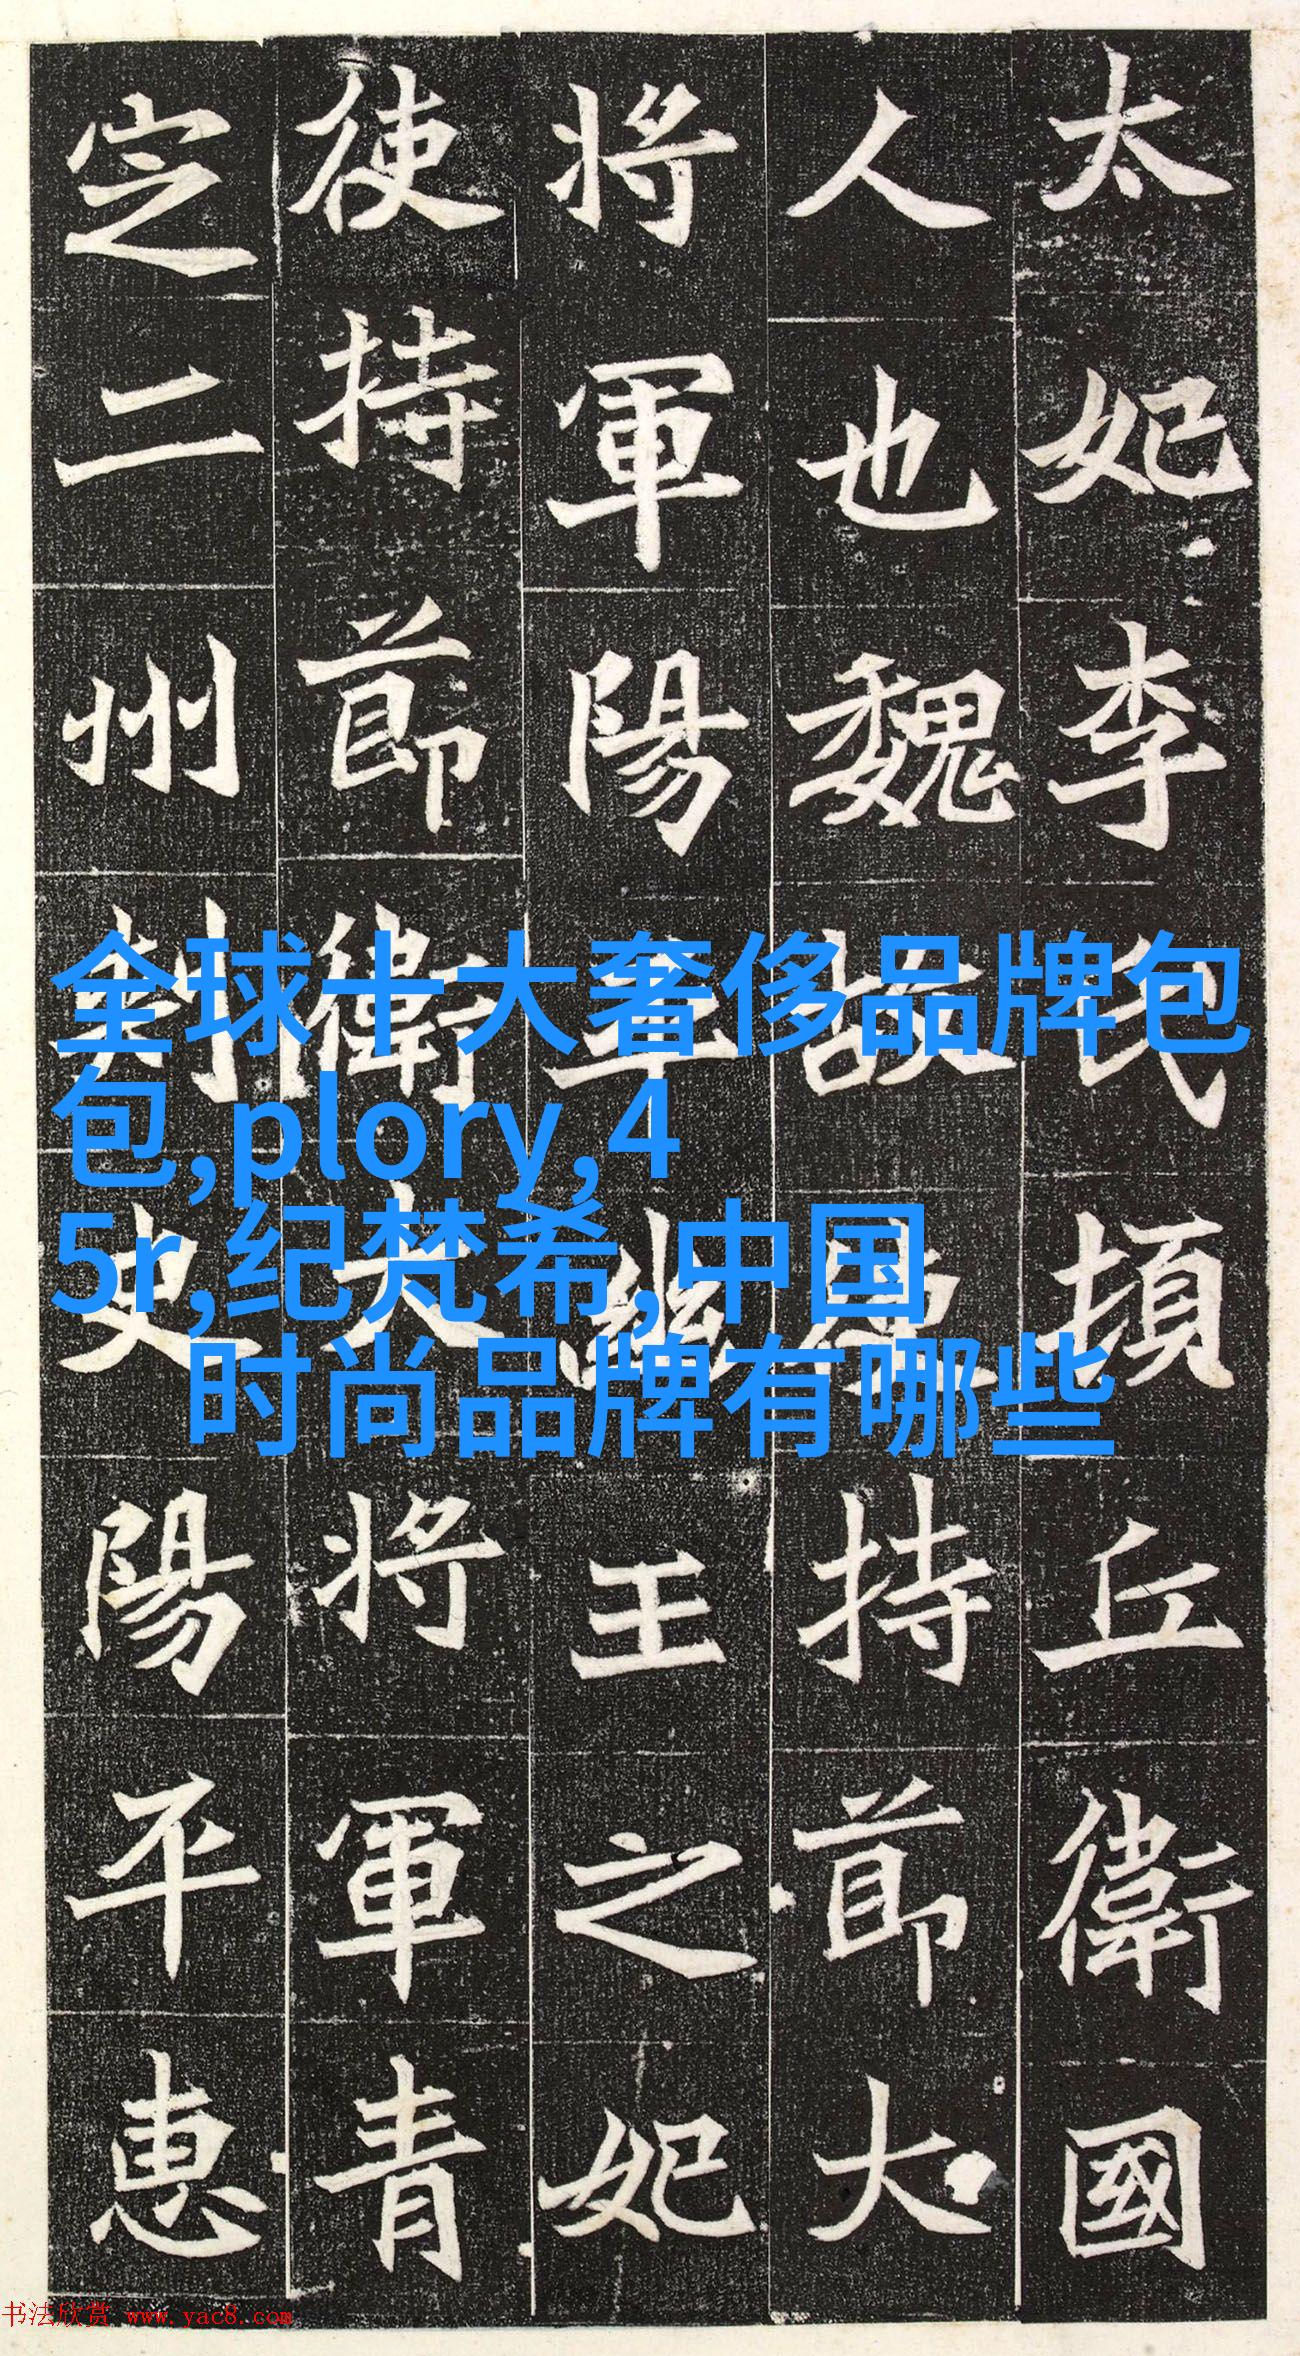 太妃李氏頓丘衛國
人也魏故使持節大
將軍陽平幽王之妃
使持節衛大將軍青
定二州刺史陽平惠
全球十大奢侈品牌包
包,plory,4
5r,纪梵希,中国
时尚品牌有哪些
书法欣赏 www.yac8.com